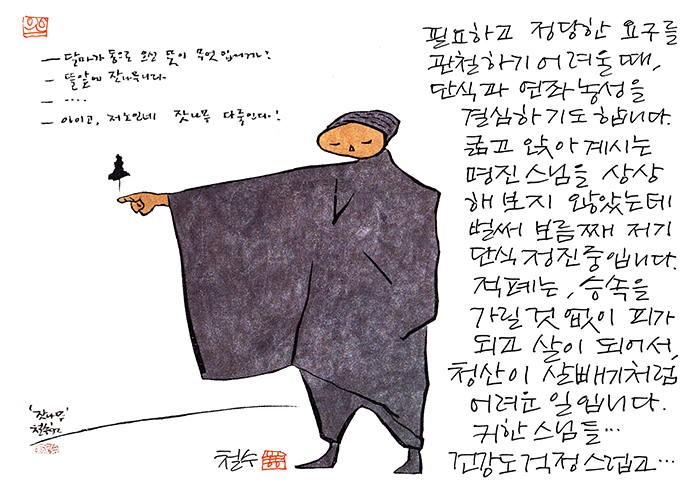 — 달마가 동으로 오신 뜻이 무엇입니까?
— 뜰앞에 잣나무니라.
— ....
— 아이고, 저노인네 잣나무 다죽인다!
필요하고 정당한 요구를
관철하기 어려울 때,
단식과 연좌농성을
결심하기도 합니다.
굶고 앉아 계시는
명진스님을 상상
해 보지 않았는데
벌써 보름째 저기
단식정진중입니다.
적폐는, 승속을
가릴 것 없이 피가
되고 살이 되어서,
청산이 살빼기처럼
어려운 일입니다.
귀한 스님들...
건강도 걱정스럽고...
'잣나무'
철수
철수